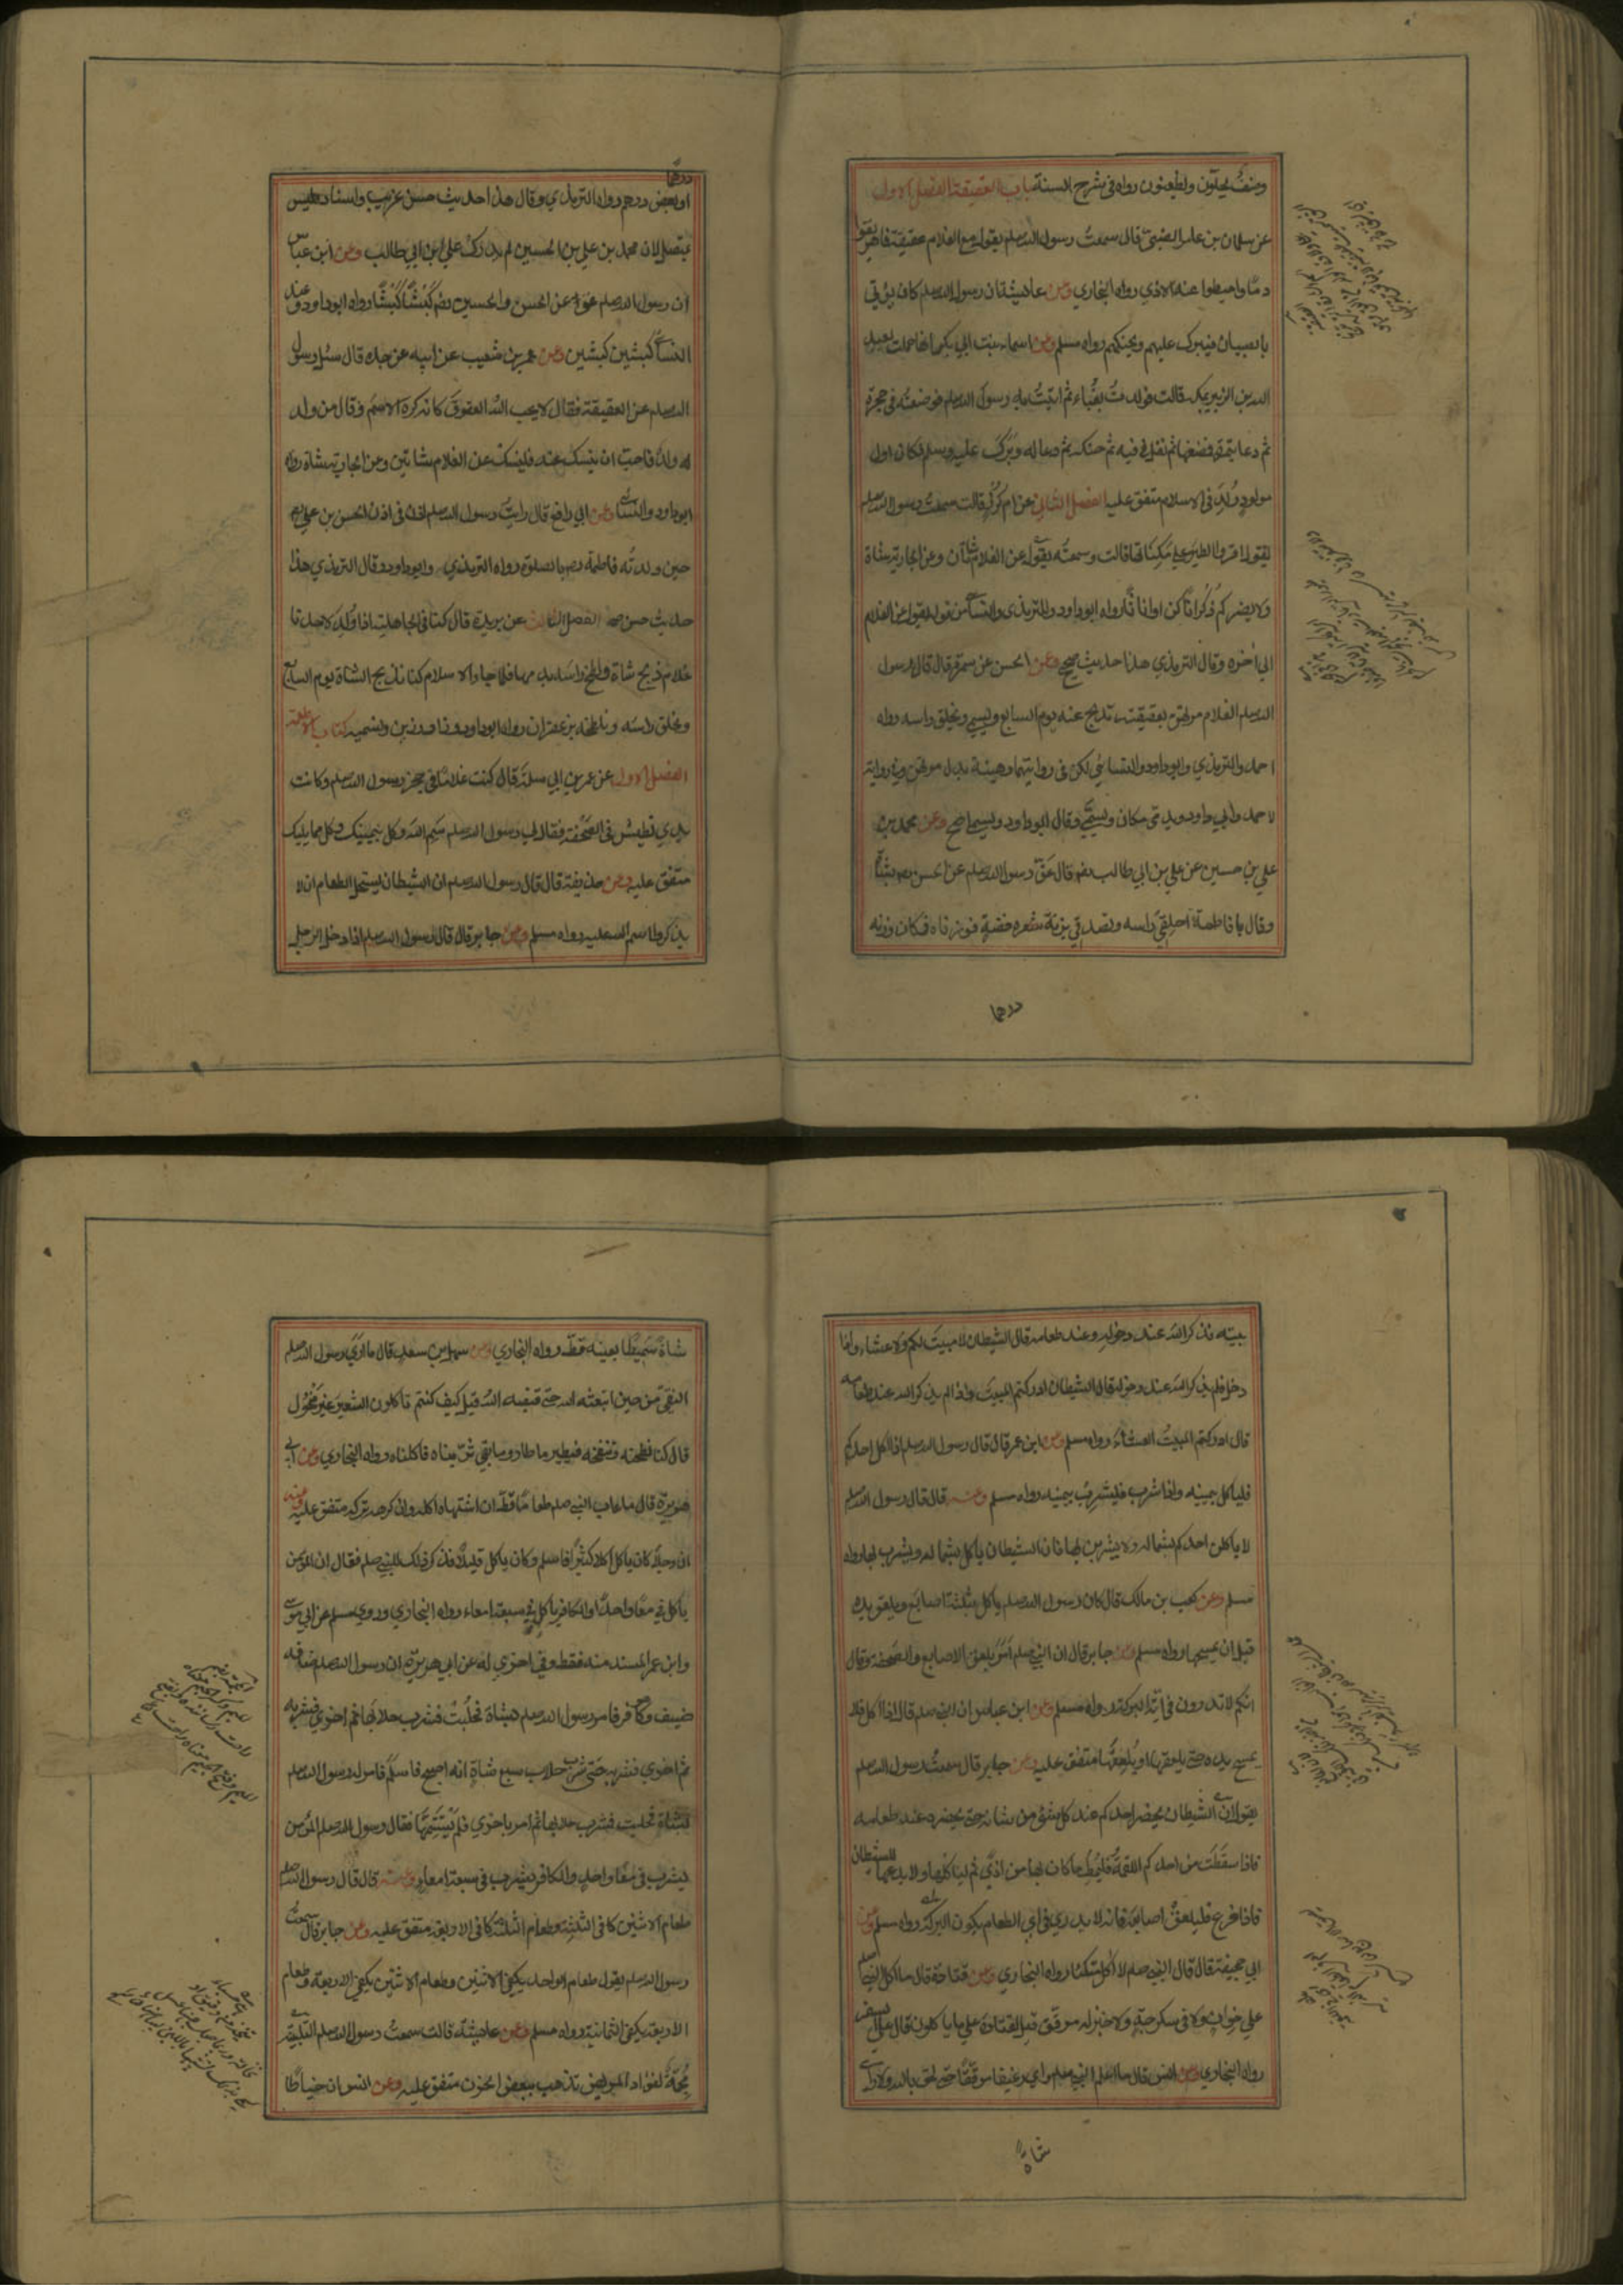 وصنفٌ يحلّون ويظعنون رواه في شرح السنة باب العقيقة الفصل الاول
عن سلمان بن عامر الضبّي قال سمعتُ رسول الله صلعم يقول مع الغلام عقيقة فاهريقوا
دمًا واميطوا عنه الاذي رواه البخاري وعن عايشة ان رسول الله صلعم كان يؤتي
بالصبيان فيبرك عليهم ويحنكهم رواه مسلم وعن اسماء بنت ابي بكر انها حملت بعبد
الله بن الزبير بمكة قالت فولدتُ بقُباء ثم اتيتُ به رسول الله صلعم فوضعتُه في حجره
ثم دعا بتمرة فمضغها ثم تفل في فيه ثم حنكه ثم دعا له وبَرّك عليه وسلم فكان اول
مولودٍ وُلِدَ في الاسلام متفق عليه الفصل الثاني عن ام كُرزٍ قالت سمعتُ رسول الله صلعم
يقول اقروا الطير علي مَكِناتها قالت وسمعتُه يقول عن الغلام شاتان وعن الجارية شاة
ولا يضركم ذُكرانًا كن او اناثًا رواه ابو داود والترمذي والنسائي من قوله يقول عن الغلام
الي اخره وقال الترمذي هذا حديث صحيح وعن الحسن عن سمرة قال قال رسول
الله صلعم الغلام مرتهن بعقيقته تذبح عنه يوم السابع ويسمي ويحلق راسه رواه
احمد والترمذي وابو داود والنسائي لكن في روايتهما رهينة بدل مرتهن وفي رواية
لاحمد وابي داود ويدمّي مكان ويسمّي وقال ابو داود ويسمي اصح وعن محمد بن
علي بن حسين عن علي بن ابي طالب رضه قال عَقّ رسول الله صلعم عن الحسن رضه بشاةٍ
وقال يا فاطمة احلِقي راسه وتصدقي بزنة شعره فضة فوزناه فكان وزنه
درهما
درهمًا
او بعض درهم رواه الترمذي وقال هذا حديث حسن غريب واسناده ليس
بمتصل لان محمد بن علي بن الحسين لم يدرك علي بن ابي طالب وعن ابن عباس
ان رسول الله صلعم عقّ عن الحسن والحسين رضه كَبْشًا كَبْشًا رواه ابو داود وعند
النسائي كبشين كبشين وعن عمرو بن شعيب عن ابيه عن جده قال سئل رسول
الله صلعم عن العقيقة فقال لا يحب الله العقوقَ كانه كره الاسمَ وقال من ولد
له ولدٌ فاحبّ ان ينسك عنه فلينسك عن الغلام شاتين وعن الجارية شاة رواه
ابو داود والنسائي وعن ابي رافع قال رايتُ رسول الله صلعم اذن في اذن الحسن بن علي رضه
حين ولدته فاطمة رضه بالصلوة رواه الترمذي وابو داود وقال الترمذي هذا
حديث حسن صحيح الفصل الثالث عن بريدة قال كنا في الجاهلية اذا وُلِدَ لاحدنا
غلام ذبح شاة ولطخ راسه بدمها فلما جاء الاسلام كنا نذبح الشاة يوم السابع
ونحلق راسه ونلطخه بزعفران رواه ابو داود وزاد رزين ونسميه كتاب الاطعمة
الفصل الاول عن عمر بن ابي سلمة قال كنت غلامًا في حجر رسول الله صلعم وكانت
يدي تطيش في الصَّحْفة فقال لي رسول الله صلعم سَمِّ الله وكل بيمينك وكل مما يليك
متفق عليه وعن حذيفة قال قال رسول الله صلعم ان الشيطان يستحل الطعام ان لا
يذكر اسم الله عليه رواه مسلم وعن جابر قال قال رسول الله صلعم اذا دخل الرجل
بيته فذكر الله عند دخوله وعند طعامه قال الشيطان لا مبيتَ لكم ولا عشاء واذا
دخل فلم يذكر الله عند دخوله قال الشيطان ادركتم المبيتَ واذا لم يذكر الله عند طعامه
قال ادركتم المبيتَ والعشاءَ رواه مسلم وعن ابن عمر قال قال رسول الله صلعم اذا اكل احدكم
فليأكل بيمينه واذا شرب فليشرب بيمينه رواه مسلم وعنه قال قال رسول الله صلعم
لا ياكلن احدكم بشماله ولا يشربن بها فان الشيطان ياكل بشماله ويشرب بها رواه
مسلم وعن كعب بن مالك قال كان رسول الله صلعم ياكل بثلثة اصابع ويلعق يده
قبل ان يمسحها رواه مسلم وعن جابر قال ان النبي صلعم اَمَرَ بلعق الاصابع والصحفة وقال
انكم لا تدرون في ايّة البركة رواه مسلم وعن ابن عباس ان النبي صلعم قال اذا اكل فلا
يمسح يده حتي يلعقها او يُلعِقَها متفق عليه وعن جابر قال سمعتُ رسول الله صلعم
يقول ان الشيطان يحضر احدكم عند كل شئ من شانه حتي يحضره عند طعامه
فاذا سقطت من احدكم اللقمةُ فليُمِط ما كان بها من اذي ثم لياكلها ولا يدعها للشيطان
فاذا فرغ فليلعق اصابعه فانه لا يدري في اي طعامه يكون البركة رواه مسلم وعن
ابي جحيفة قال قال النبي صلعم لا اٰكل متكئا رواه البخاري وعن قتادة قال ما اكل النبي صلعم
علي خوانٍ ولا في سكرجةٍ ولا خبز له مرقّق قيل لقتادة علي ما ياكلون قال علي السفر
رواه البخاري وعن انس قال ما اعلم النبي صلعم راي رغيفا مرققًا حتي لحق بالله ولا راي
شاة
شاةً سَمِيطًا بعينه قطّ رواه البخاري وعن سهل بن سعد قال ما راي رسول الله صلعم
النقيّ من حين ابتعثه الله حتي قبضه الله قيل كيف كنتم تاكلون الشعير غير منخول
قال كنا نطحنه وننفخه فيطير ما طار وما بقي ثرّيناه فاكلناه رواه البخاري وعن ابي
هريرة قال ما عاب النبي صلعم طعامًا قطّ ان اشتهاه اكله وان كرهه تركه متفق عليه وعنه
ان رجلًا كان ياكل اكلا كثيرًا فاسلم وكان ياكل قليلًا فذكر ذلك للنبي صلعم فقال ان المؤمن
ياكل في معًا واحدٍ والكافر ياكل في سبعة امعاء رواه البخاري وروي مسلم عن ابي موسي
وابن عمر المسند منه فقط وفي اخري له عن ابي هريرة ان رسول الله صلعم ضافه
ضيف وهو كافر فامر رسول الله صلعم بشاة فحُلبتْ فشرب حلابها ثم اخري فشربه
ثم اخري فشربه حتي شرب حلاب سبع شياةٍ ثم انه اصبح فاسلم فامر له رسول الله صلعم
بشاة فحلبت فشرب حلابها ثم امر باخري فلم يَسْتَتِمَّها فقال رسول الله صلعم المؤمن
يشرب في معًا واحدٍ والكافر يشرب في سبعة امعاءٍ وعنه قال قال رسول الله صلعم
طعام الاثنين كافي الثلثة وطعام الثلثة كافي الاربعة متفق عليه وعن جابر قال سمعت
رسول الله صلعم يقول طعام الواحد يكفي الاثنين وطعام الاثنين يكفي الاربعة وطعام
الاربعة يكفي الثمانية رواه مسلم وعن عايشة قالت سمعتُ رسول الله صلعم يقول التلبينة
مُجمّةٌ لفؤاد المريض تذهب ببعض الحزن متفق عليه وعن انس ان خياطًا